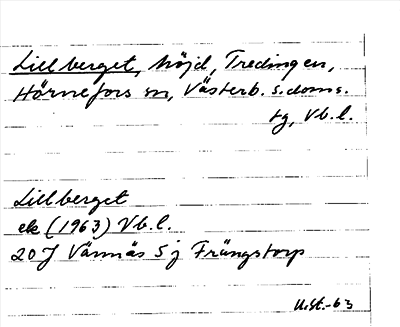 Lillberget, höjd, Tredingen,
Hörnefors sn, Västerb. s. doms.
tg, Vb. l.
Lillberget
ek (1963) Vb. l.
20J Vännäs 5 j Frängstorp
U.St.-63